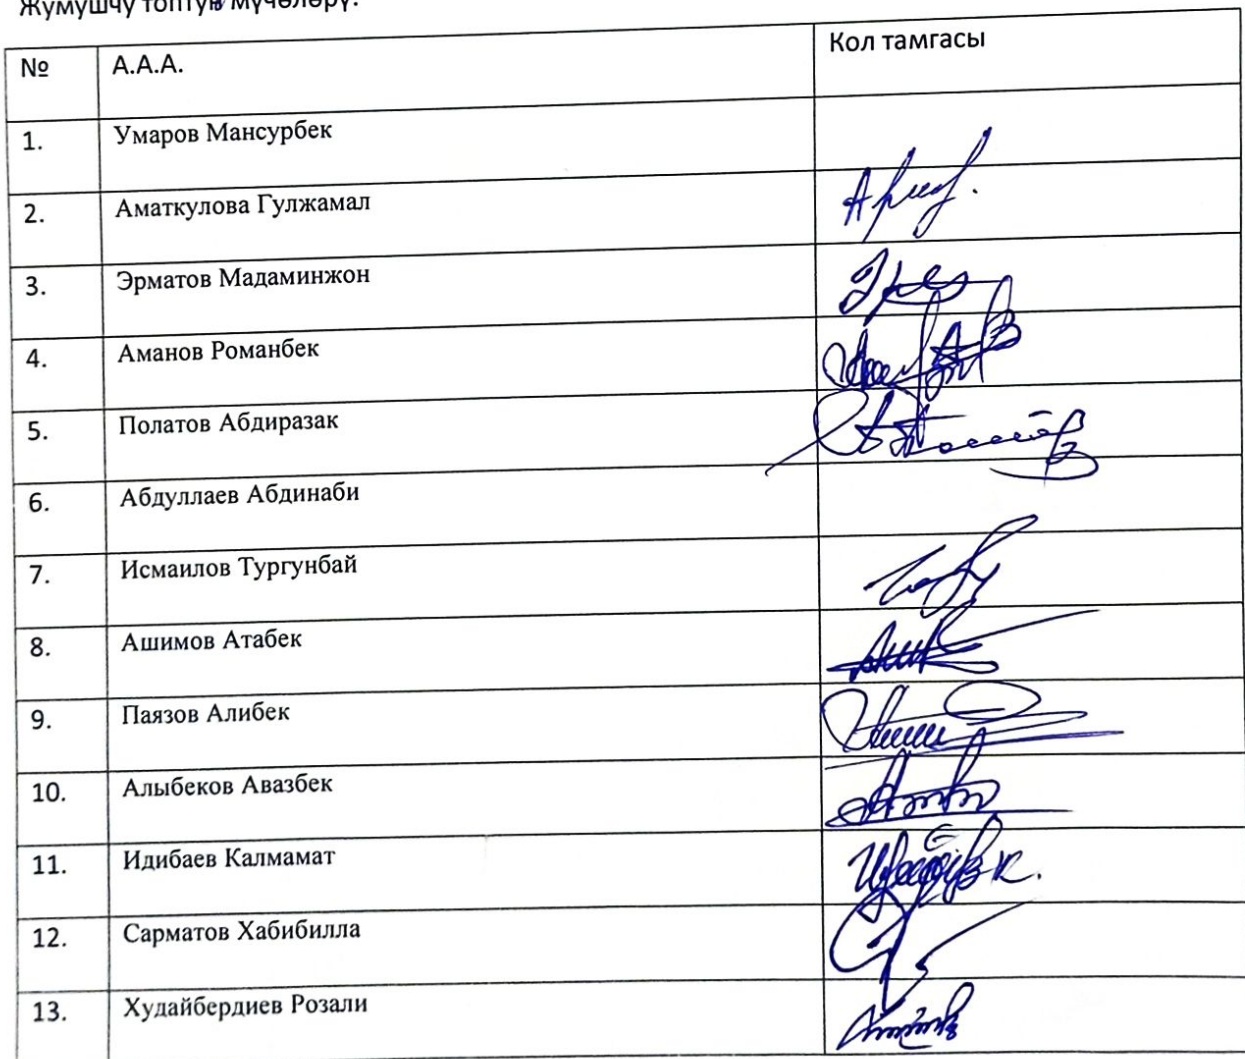 Жумушчу топтун мүчөлөрү:
№ А.А.А. Кол тамгасы
1. Умаров Мансурбек
2. Аматкулова Гулжамал
3. Эрматов Мадаминжон
4. Аманов Романбек
5. Полатов Абдиразак
6. Абдуллаев Абдинаби
7. Исмаилов Тургунбай
8. Ашимов Атабек
9. Паязов Алибек
10. Алыбеков Авазбек
11. Идибаев Калмамат
12. Сарматов Хабибилла
13. Худайбердиев Розали